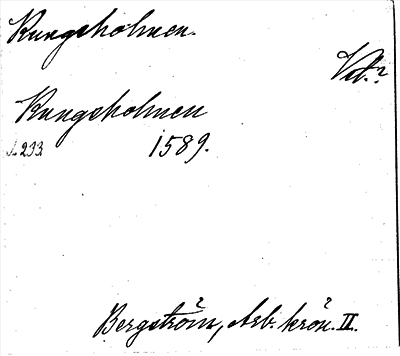 Kungsholmen.
Vstm.?
Kungsholmen
s. 233. 1589.
Bergström, Arb. krön. II.